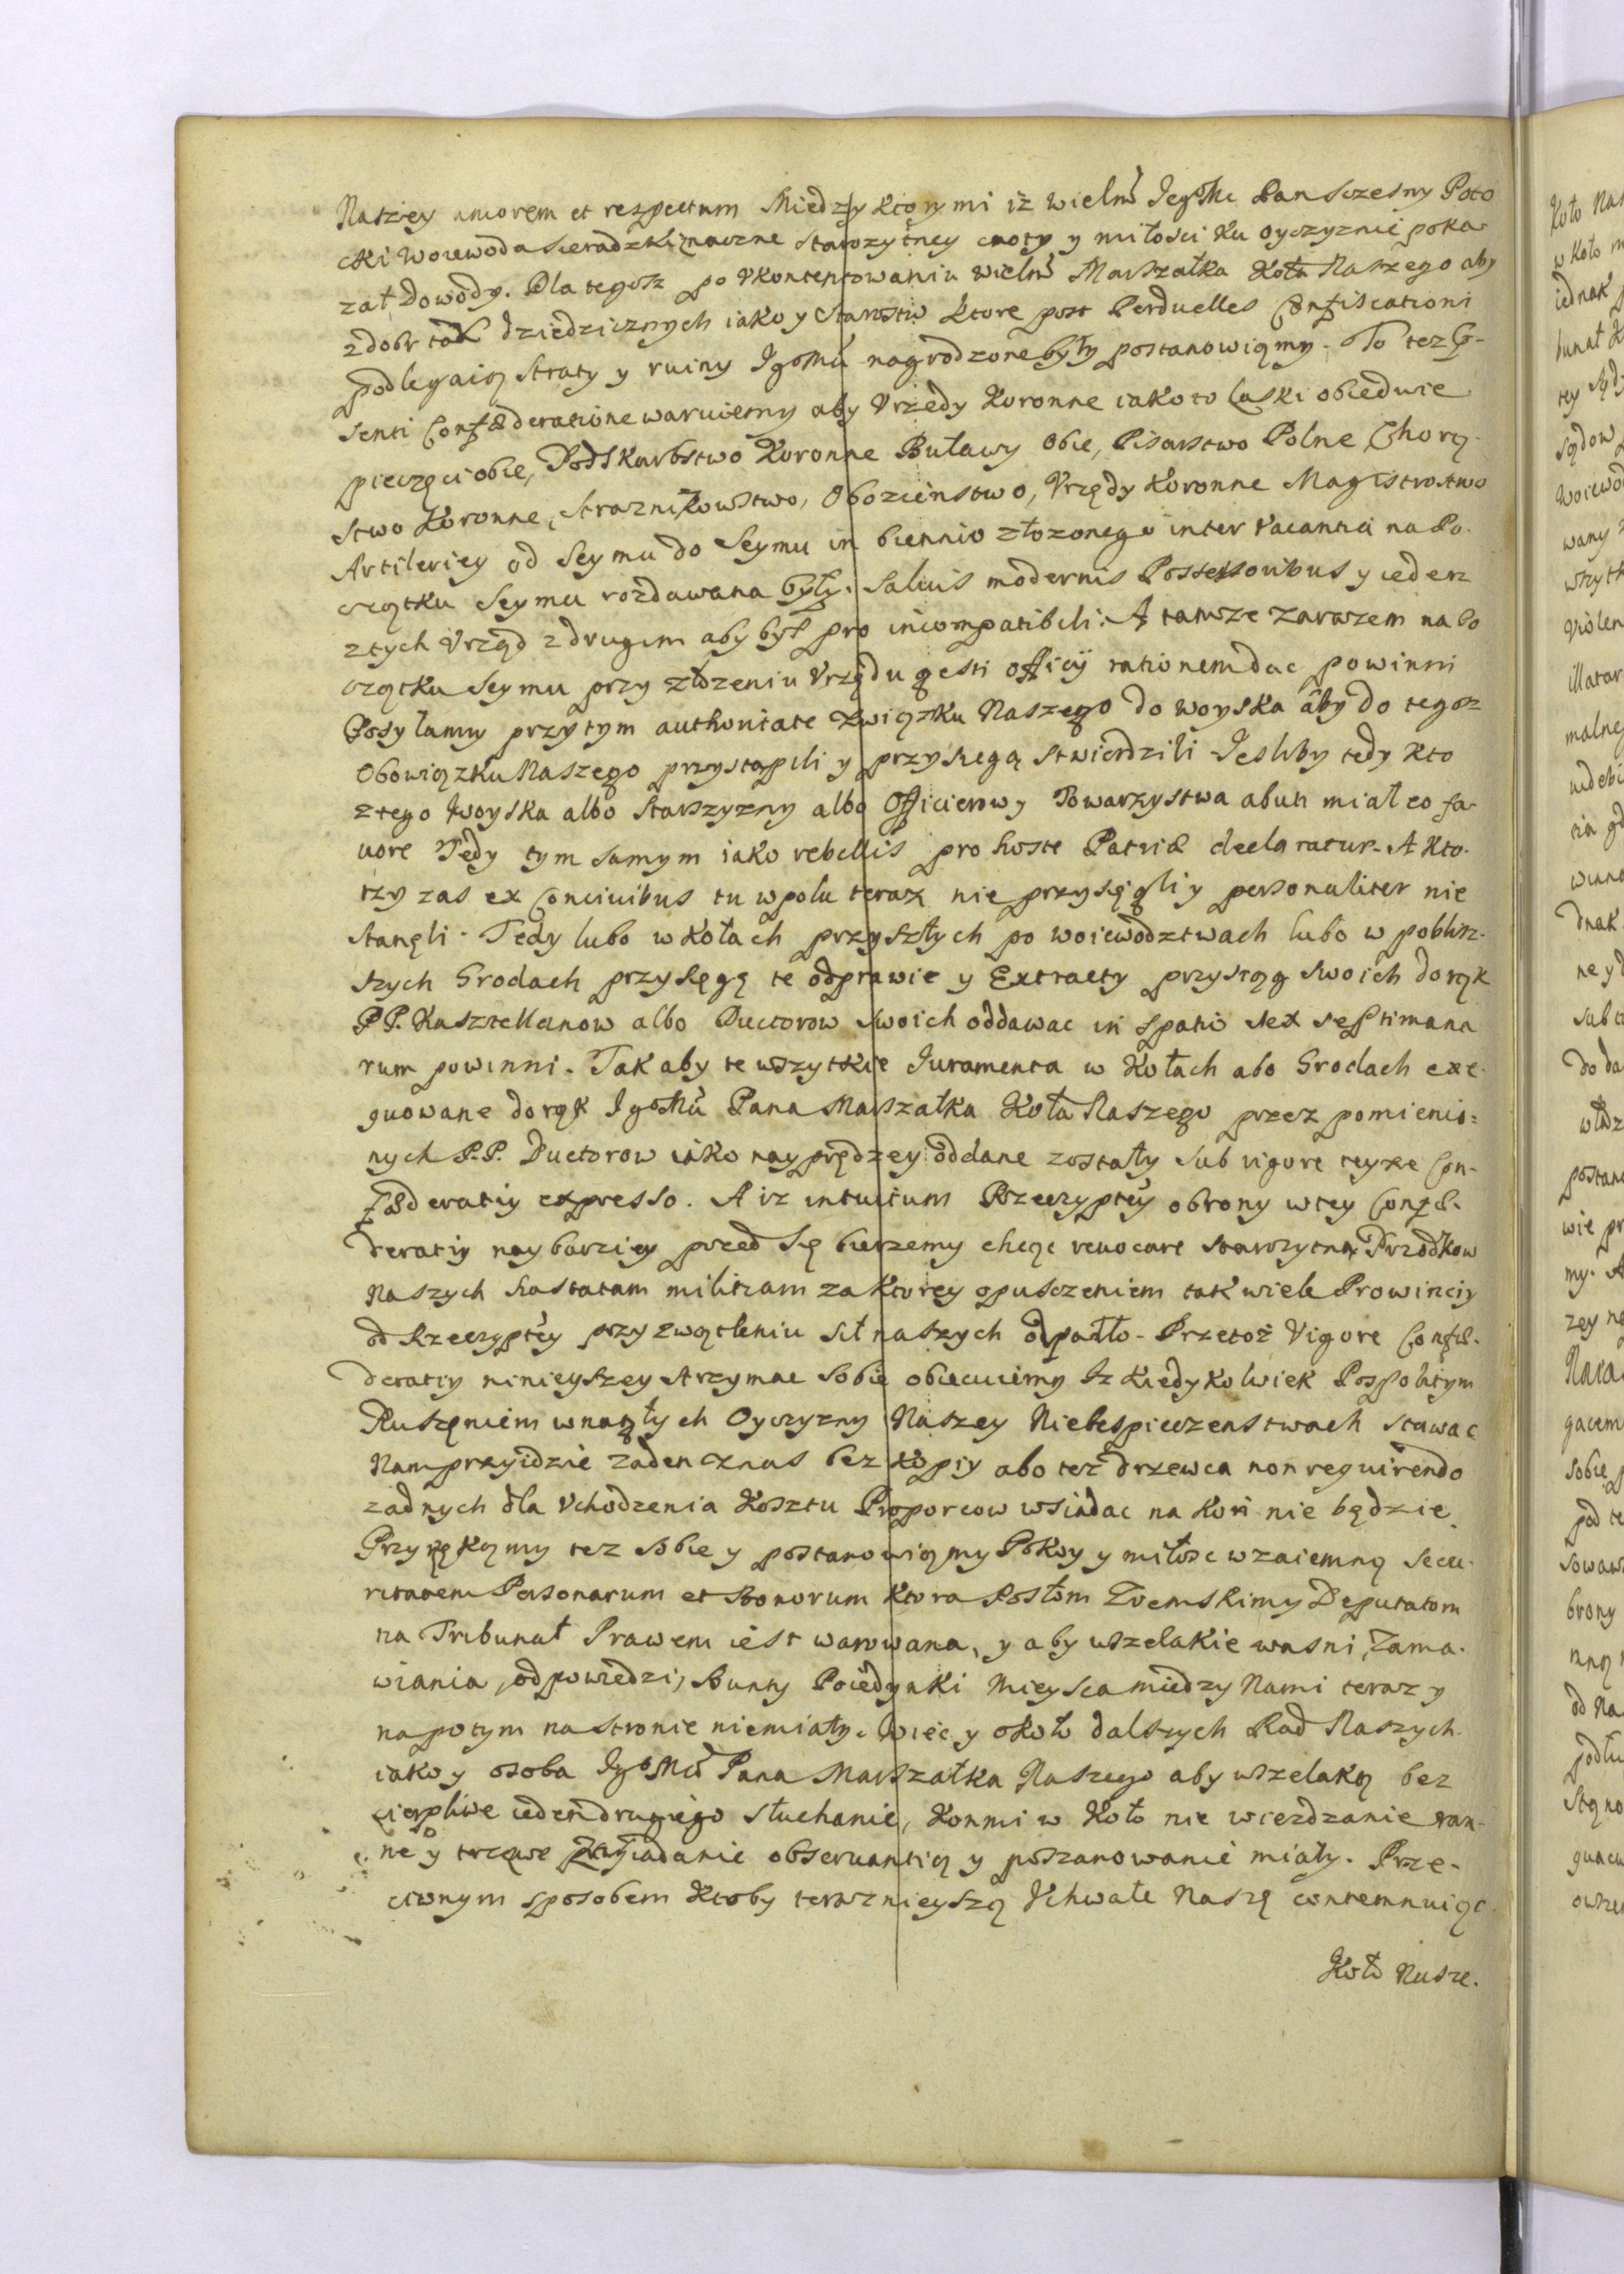 Naszey amorem et respectum Miedzy ktorymi iż wielm̃ Jeg͠oMc Pan Sczesny Poto
cki Woiewoda Sieradzki znaczne starozytney cnoty y miłosci ku oyczyznie poka
zał dowody. Dla tegosz po Vkontentowaniu wielm̃ Marszałka Koła Naszego aby
z dobr tak dziedzicznych iako y Starostw ktore post Perduelles Confiscationi
podlegaią straty y ruiny Jg͠oMći nagrodzone były postanowiąmy. To tez
senti Confæderatione waruiemy aby Vrzędy Koronne iako to Laski obiedwie
pieczęci obie, Podskarbstwo Koronne Buławy obie, Pisarstwo Polne, Chorą-
stwo Koronne, Straznikowstwo, Obozienstwo, Vrzędy Koronne Magistrostwo
Artileriey od Seymu do Seymu in biennio złozonego inter Vacantia na Po-
czątku Seymu rozdawana były. Saluis modernis Possessoribus y ieden
z tych Vrząd z drugim aby był pro incompatibili. A tamze zarazem na Po
czątku Seymu przy złozeniu Vrzędu gesti officÿ rationem dac powinni
Posyłamy przytym authoritate związku Naszego do woyska aby do tegoz
Obowiązku Naszego przystąpili y przysięgą stwierdzili Jesliby tedy kto
z tego woyska albo Starszyzny albo Officierow y Towarzystwa abuti miał eo fa-
uore Tedy tym samym iako rebellis pro hoste Patriæ declaratur. A kto-
rzy zas ex Conciuibus tu w polu teraz nie przysięgli y personaliter nie
stanęli. Tedy lubo w kołach przyszłych po woiewodztwach lubo w poblisz-
szych Grodach przysięgę te odprawie y Extracty przysiąg swoich do rąk
P P. Kasztellanow albo Ductorow swoich oddawac in spatio sex septimana
rum powinni. Tak aby te wszytkie Juramenta w Kołach abo Grodach exe-
quowane do rąk Jg͠oMći Pana Marszałka Koła Naszego przez pomienio=
nych P.P. Ductorow iako nayprędzey oddane zostały sub vigore teyze Con-
fæderatiy expresso. A iz intuitum Rzeczyptéy obrony w tey Confæ-
deratiy naybarziey przed się bierzemy chcąc reuocare starozytną Przodkow
Naszych hastatam militiam za ktorey opusczeniem tak wiele Prowinciy
od Rzeczyptéy przy zwątleniu sił naszych odpadło. Przetoż Vigore Confæ-
deratiy ninieyszey strzymac sobie obiecuiemy Iz kiedykolwiek Pospolitym
Ruszęniem w nagłych Oyczyzny Naszey Niebespieczenstwach stawac
Nam przyidzie zaden z nas bez kopiy abo tez drzewca non requirendo
zadnych dla Vchodzenia Kosztu Proporcow wsiadac na kon nie będzie
Przyrękąmy tez sobie y postanowiąmy Pokoy y miłosc wzaiemną secu-
ritatem Personarum et Bonorum ktora Posłom Ziemskim y Deputatom
na Tribunał Prawem iest warowana, y aby wszelakie wasni, zama-
wiania, odpowiedzi, Bunty Poiedynki mieysca miedzy Nami teraz y
na potym na stronie niemiały. Więc y około dalszych Rad Naszych
iako y osoba Jg͠oMći Pana Marszałka Naszego aby wszelaką bez
cierpliwe ieden drugiego słuchanie, konmi w Koło nie wiezdzanie ran-
ne y trzezwe zasiadanie obseruantią y poszanowanie miały. Prze-
ciwnym sposobem ktoby teraznieyszą Vchwałe Naszę contemnuiąc
Koło Nasze.